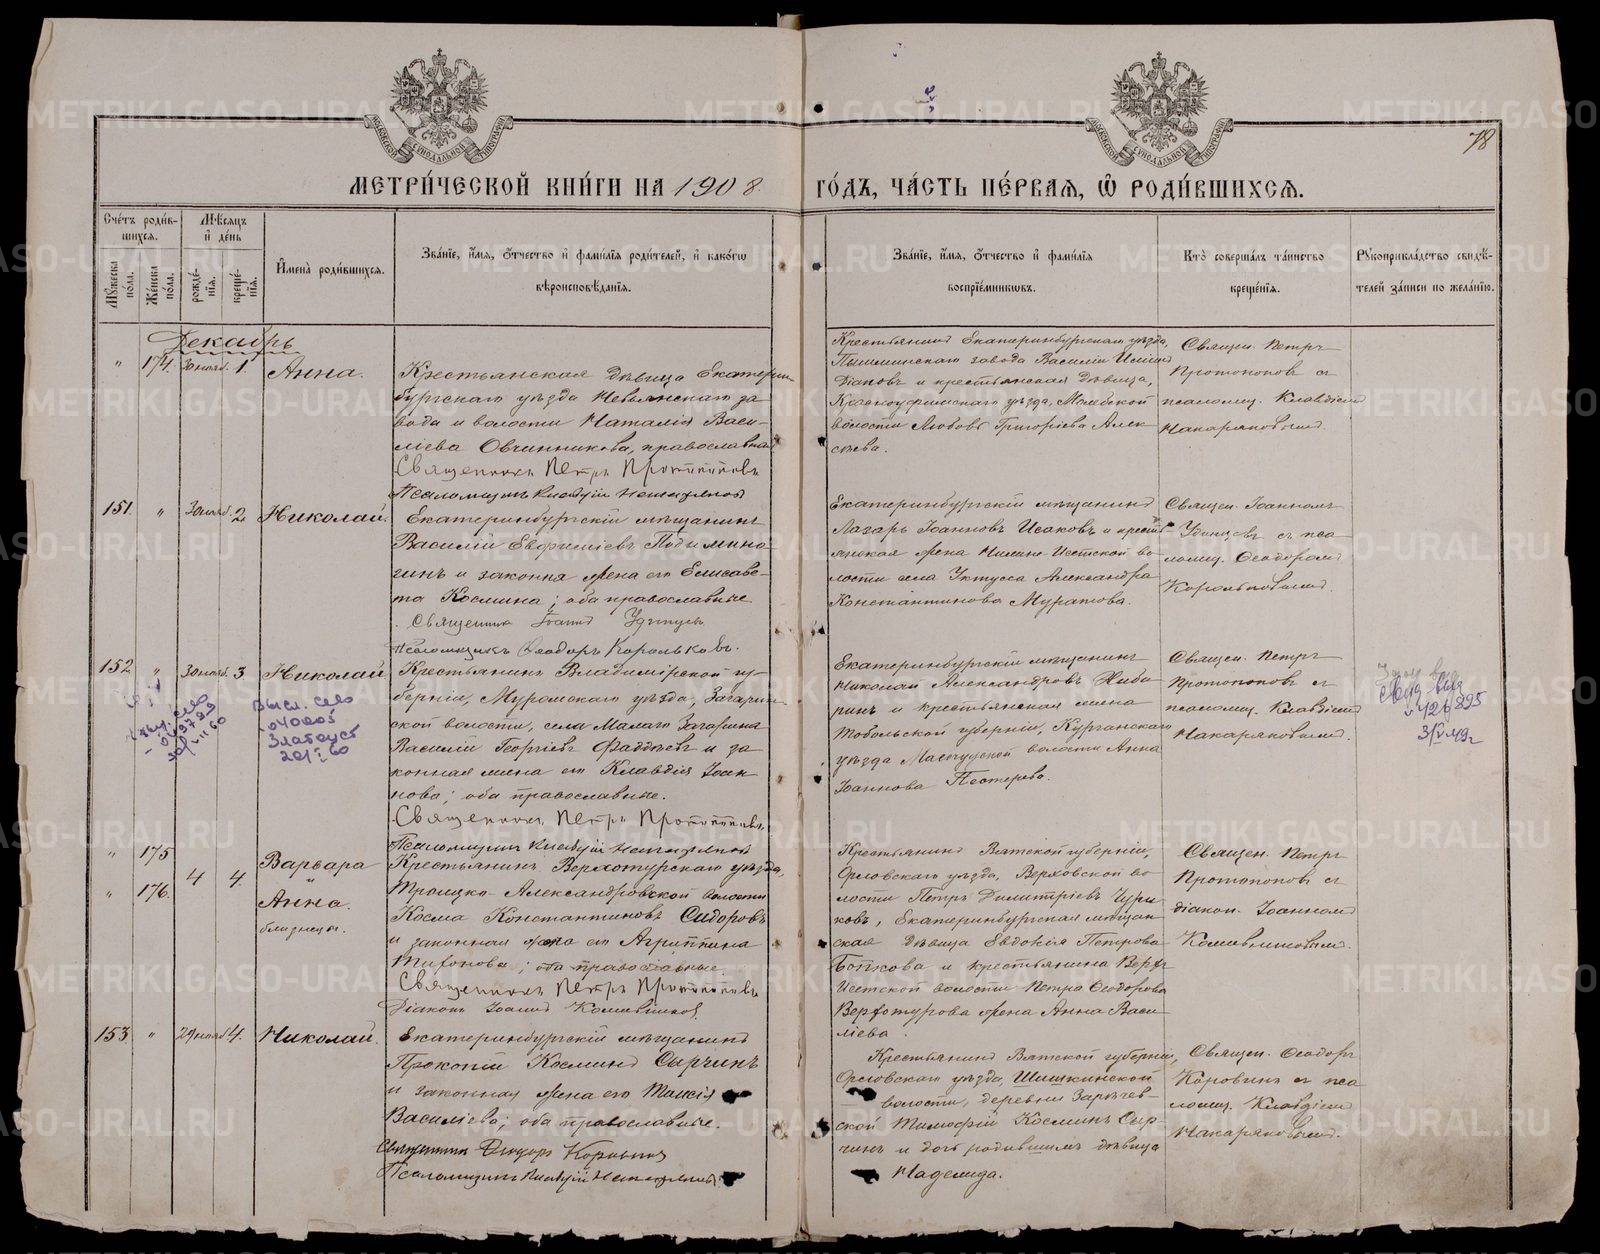 МОСКОВСКОЙ СѴНОДАЛЬНОЙ ТИПОГРАФІИ
МОСКОВСКОЙ СѴНОДАЛЬНОЙ ТИПОГРАФІИ
78
МЕТРИ́ЧЕСКОЙ КНИ́ГИ НА 1908
ГО́ДЪ, ЧА́СТЬ ПЕ́РВАЯ, Ѡ РОДИ́ВШИХСЯ.
Счетъ роди́в-
шихся.
Мужеска пола.
Же́нска пола.
Мѣсяцъ
и день
рожде́-
нія.
креще-
нія.
Имена̀ роди́вшихся.
Зва́ніе, и́мя, о́тчество и фами́лія роди́телей, и како́гѡ
вѣроисповѣ́данія.
Зва́ніе, и́мя, о́тчество и фами́лія
воспріе́мниковъ.
Кто̀ соверша́лъ та́инство
креще́нія.
Рукоприкла́дство свидѣ́-
телей за́писи по жела́нію.
Декабрь
" 174. 30 нояб. 1. Анна.
Крестьянская дѣвица Екатерин-
бургскаго уѣзда Невьянскаго за-
вода и волости Наталія Васи-
ліева Овчинникова, православная
Священникъ Петръ Протопоповъ
Псаломщикъ
Крестьянинъ Екатеринбургскаго уѣзда,
Пышминскаго завода Василій
Діаковъ и крестьянская дѣвица,
Красноуфимскаго уѣзда, Молебской
волости Любовь Григоріева Алек-
сѣева.
Священ. Петръ
Протопоповъ съ
псаломщ. Клавдіемъ
Макаряновымъ.
151. " 30 нояб. 2. Николай.
Екатеринбургскій мѣщанинъ
Василій Евфиміевъ
и законная жена его Елисаве-
та Космина; оба православные
Священникъ Іоаннъ Удинцевъ
Псаломщикъ Ѳеодоръ Корольковъ.
Екатеринбургскій мѣщанинъ
Лазарь Іоанновъ Исаковъ и крестья-
янская жена Нижне-Исетской во-
лости села Уктусса Александра
Константинова Муратова.
Священ. Іоанномъ
Удинцевъ съ пса-
ломщ. Ѳеодоромъ
Корольковымъ.
152. " 30 нояб. 3 Николай
Крестьянинъ Владимірской гу-
берніи, Муромскаго уѣзда, Загарин-
ской волости, села Малаго Загарина
Василій Георгіевъ Фаддѣевъ и за-
конная жена его Клавдія Іоан-
нова; оба православные.
Священникъ Петръ Протопоповъ
Псаломщикъ
Екатеринбургскій мѣщанинъ
Николай Александровъ
и крестьянская жена
Тобольской губерніи, Курганскаго
уѣзда волости Анна
Іоаннова Пестерева.
Священ. Петръ
Протопоповъ съ
псаломщ. Клавдіемъ
Макаряновымъ.
Выс. св-во
040005
Златоуст
20/I 60
426895
3/V 49г
" 175
" 176. 4 4. Варвара
"
Анна.
близнецы.
Крестьянинъ Верхотурскаго уѣзда,
Троицко-Александровской волости
Косма Константиновъ Сидоровъ
и законная жена его Агриппина
Тихонова; оба православные.
Священникъ Петръ Протопоповъ
Діаконъ Іоаннъ
Крестьянинъ Вятской губерніи,
Орловскаго уѣзда, Верховской во-
лости Петръ Димитріевъ Чури-
ковъ, Екатеринбургская мѣщан-
ская дѣвица Евдокія Петрова
Бопкова и крестьянина Верх-
Исетской волости Петра Ѳеодорова
Верхотурова жена Анна Васи-
ліева.
Священ. Петръ
Протопоповъ съ
діакон. Іоанномъ
153 " 29 нояб. 4. Николай.
Екатеринбургскій мѣщанинъ
Прокопій Косминъ Сырчинъ
и законная жена его Таисія
Василіева; оба православные.
Священникъ Ѳеодоръ Коровинъ
Псаломщикъ
Крестьянинъ Вятской губерніи,
Орловскаго уѣзда, Шишкинской
волости, деревни Зарѣчев-
ской Тимофій Косминъ Сыр-
чинъ и дочь родившимъ дѣвица
Надежда.
Священ. Ѳеодоръ
Коровинъ съ пса-
ломщ. Клавдіемъ
Макаряновымъ.
METRIKI.GASO-URAL.RU